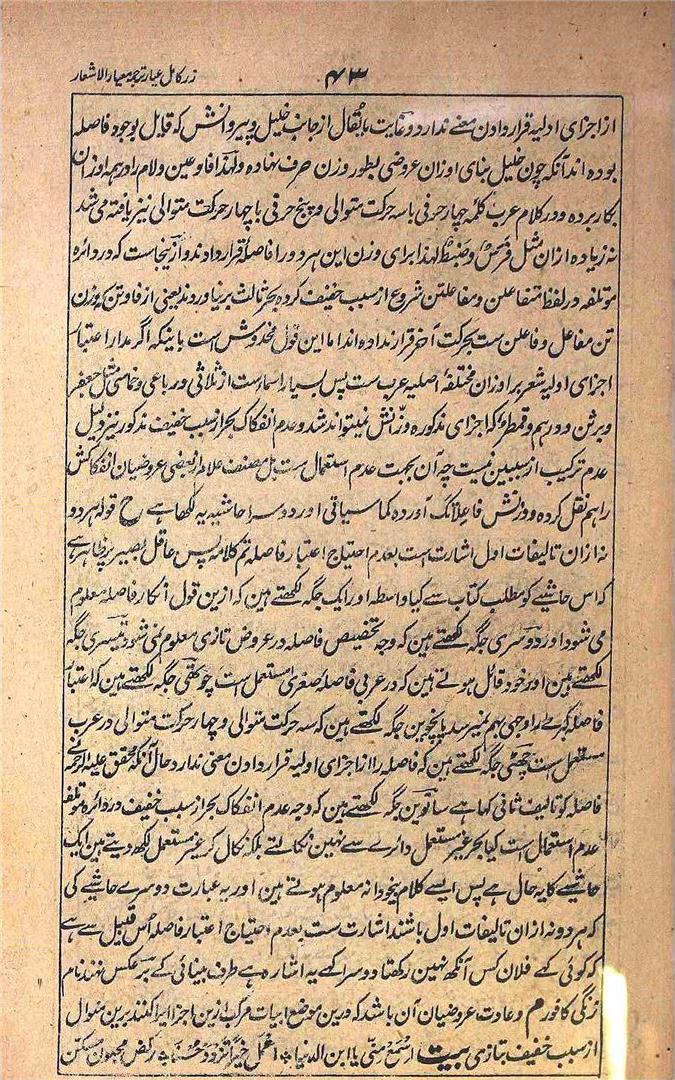 ۴۳
زر کامل عیار ترجمہ معیار الاشعار
از اجزای اولیہ قرار دادن معنے ندارد و غایت ما یقال از جانب خلیل و پیروانش کہ قایل بوجود فاصلہ
بودہ اند آنکہ چون خلیل بنای اوزان عروضی بطور وزن صرف نہادہ ولہذا فا و عین و لام را در ہمہ اوزان
بکار بردہ و در کلام عرب کلمہ چہار حرفی با سہ حرکت متوالی و پنج حرفی با چہار حرکت متوالی نیز یافتہ می شد
نہ زیادہ ازان مثل فرس و لہذا برای وزن این ہر دو را فاصلہ قرار دادند و ازینجاست کہ در دائرہ
موتلفہ در لفظ متفاعلن و مفاعلتن شروع از سبب خفیف کردہ بحر ثالث بر نیاوردند یعنی از فاوتن کہ بوزن
تن مفاعل و فاعلن ست بحرکت آخر قرار ندادہ اند اما این قول مخدوش ست باینکہ اگر مدار اعتبار
اجزای اولیہ شعر بر اوزان مختلفہ اصلیہ عرب ست پس بسیار اسماست از ثلاثی و رباعی و خماسی مثل جعفر
و برثن و درہم و قمطر کہ اجزای مذکورہ وزانش نمیتواند شد و عدم انفکاک بحر از سبب خفیف مذکور نیز دلیل
عدم ترکیب از سببین نیست چہ آن بجہت عدم استعمال ست بل مصنف علامہ از بعضی عروضیان انفکاکش
را ہم نقل کردہ و وزنش فاعلاتک آوردہ کما سیاتی اور دوسرا حاشیہ یہ لکھا ہے ح قولہ ہر دو
نہ ازان تالیفات اول اشارت ست بعدم احتیاج اعتبار فاصلہ تم کلامہ پس عاقل بصیر پر ظاہر ہے
کہ اس حاشیے کو مطلب کتاب سے کیا واسطہ اور ایک جگہ لکھتے ہین کہ ازین قول انکار فاصلہ معلوم
می شود اور دوسری جگہ لکھتے ہین کہ وجہ تخصیص فاصلہ در عروض تازی معلوم نمی شود تیسری جگہ
لکھتے ہین اور خود قائل ہوتے ہین کہ در عربی فاصلہ صغری مستعمل ست چوتھی جگہ لکھتے ہین کہ اعتبار
فاصلہ کبرے را وجہی بہم نمیرسد پانچوین جگہ لکھتے ہین کہ سہ حرکت متوالی و چہار حرکت متوالی در عرب
مستعمل ست چھٹی جگہ لکھتے ہین کہ فاصلہ را از اجزای اولیہ قرار دادن معنی ندارد حال آنکہ محقق علیہ الرحمہ نے
فاصلہ کو تالیف ثانی کہا ہے ساتوین جگہ لکھتے ہین کہ وجہ عدم انفکاک بحر از سبب خفیف در دائرہ موتلفہ
عدم استعمال ست کیا بحر غیر مستعمل دائرے سے نہین نکالتے بلکہ نکال کر غیر مستعمل لکھ دیتے ہین ایک
حاشیے کا یہ حال ہے پس ایسے کلام بیخودانہ معلوم ہوتے ہین اور یہ عبارت دوسرے حاشیے کی
کہ ہر دو نہ ازان تالیفات اول باشند اشارت ست بعدم احتیاج اعتبار فاصلہ اس قبیل سے ہے
کہ کوئی کہے فلان کس آنکھ نہین رکھتا دوسرا کہے یہ اشارہ ہے طرف بینائی کے بر عکس نہند نام
زنگی کافور م و عادت عروضیان آن باشد کہ درین موضع ابیات مرکب ازین اجزا ایراد کنند برین منوال
از سبب خفیف بتازی بیت یا ابن الدنیا رکض مجنون مسکن